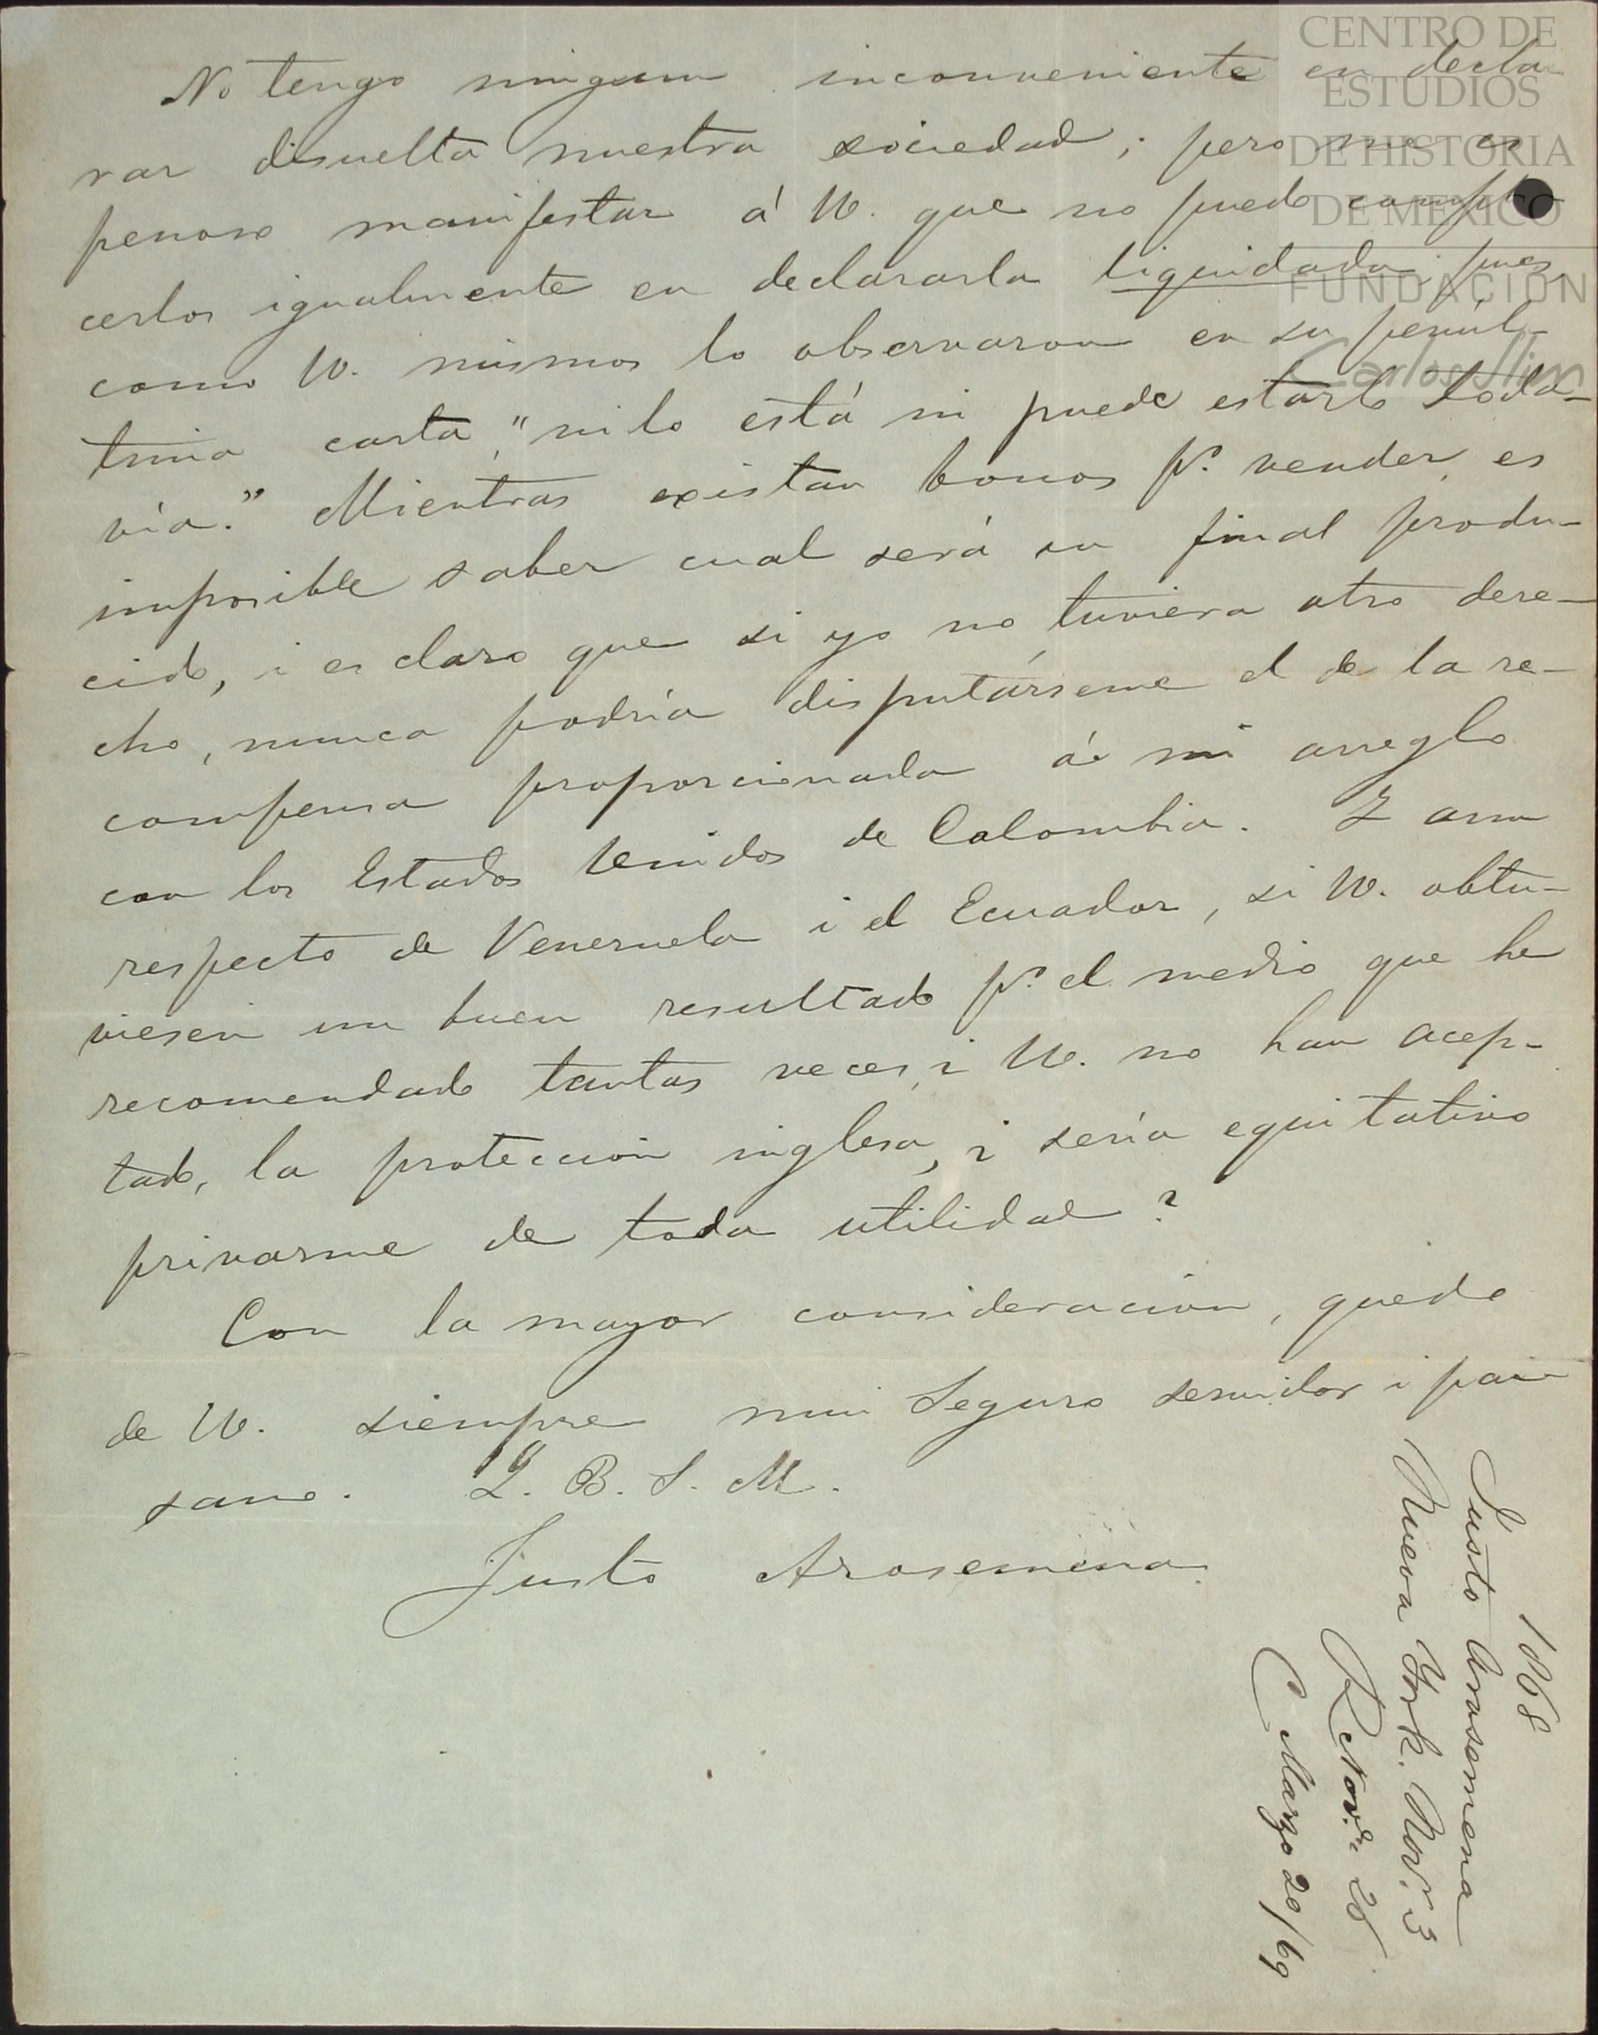 No tengo ningun inconveniente en decla-
rar disuelta nuestra sociedad; pero me es
penoso manifestar á W. que no puedo compla-
cerlos igualmente en declararla liquidada; pues,
como W. mismos lo observaron en su penúl-
tima carta, "ni lo está ni puede estarlo toda-
vía." Mientras existan bonos pr. vender, es
imposible saber cual será su final produ-
cido, i es claro que si yo no tuviera otro dere-
cho, nunca podría disputárseme el de la re-
compensa proporcionada á mi arreglo
con los Estados Unidos de Colombia. I aun
respecto de Venezuela i el Ecuador, si W. obtu-
viesen un buen resultado pr. el medio que he
recomendado tantas veces i W. no han acep-
tado, la protección inglesa, ¿ sería equitativo
privarme de toda utilidad?
Con la mayor consideración, quedo
de W. siempre mui seguro servidor i pai-
sano. Q. B. S. M.
Justo Arosemena
1868
Justo Arosemena
Nueva York, Novr. 3
R Novr. 26
C Marzo 20/69
CENTRO DE
ESTUDIOS
DE HISTORIA
DE MÉXICO
FUNDACIÓN
Carlos Slim